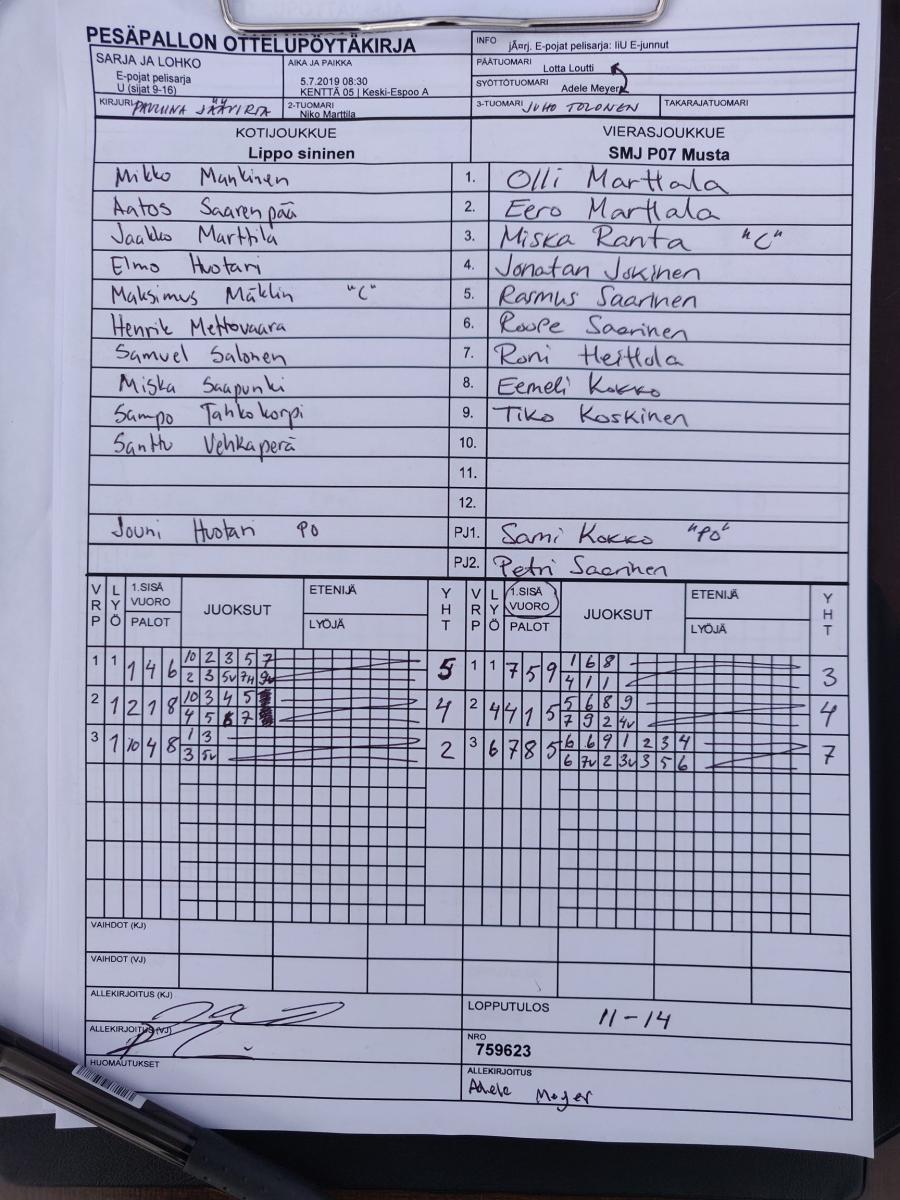 PESÄPALLON OTTELUPÖYTÄKIRJA
INFO jÃ¤rj. E-pojat pelisarja: liU E-junnut
SARJA JA LOHKO
E-pojat pelisarja
U (sijat 9-16)
AIKA JA PAIKKA
5.7.2019 08:30
KENTTÄ 05 | Keski-Espoo A
PÄÄTUOMARI Lotta Loutti
SYÖTTÖTUOMARI Adele Meyer
KIRJURI PAULIINA JÄÄVIRTA
2-TUOMARI
Niko Marttila
3-TUOMARI JUHO TOLONEN
TAKARAJATUOMARI
KOTIJOUKKUE VIERASJOUKKUE
Lippo sininen SMJ P07 Musta
Mikko Mankinen 1. Olli Marttala
Aatos Saarenpää 2. Eero Marttala
Jaakko Marttila 3. Miska Ranta "C"
Elmo Huotari 4. Jonatan Jokinen
Maksimus Mäklin "C" 5. Rasmus Saarinen
Henrik Mettovaara 6. Roope Saarinen
Samuel Salonen 7. Roni Heittola
Miska Saapunki 8. Eemeli Kokko
Sampo Tahkokorpi 9. Tiko Koskinen
Santtu Vehkaperä 10.
11.
12.
Jouni Huotari PO PJ1. Sami Kokko "PO"
PJ2. Petri Saarinen
VRP LYÖ 1.SISÄ VUORO PALOT JUOKSUT ETENIJÄ LYÖJÄ YHT VRP LYÖ 1.SISÄ VUORO PALOT JUOKSUT ETENIJÄ LYÖJÄ YHT
1 1 1 4 6 10 2 3 5 7 5 1 1 7 5 9 1 6 8 3
2 3 5v 7H 9v 4 1 1
2 1 2 1 8 10 3 4 5 4 2 4 4 1 5 5 6 8 9 4
4 5 6 7 7 9 2 4v
3 1 10 4 8 1 3 2 3 6 7 8 5 6 6 9 1 2 3 4 7
3 5v 6 7v 2 3v 3 5 6
VAIHDOT (KJ)
VAIHDOT (VJ)
ALLEKIRJOITUS (KJ)
LOPPUTULOS 11-14
ALLEKIRJOITUS (VJ)
NRO
759623
HUOMAUTUKSET
ALLEKIRJOITUS
Adele Meyer